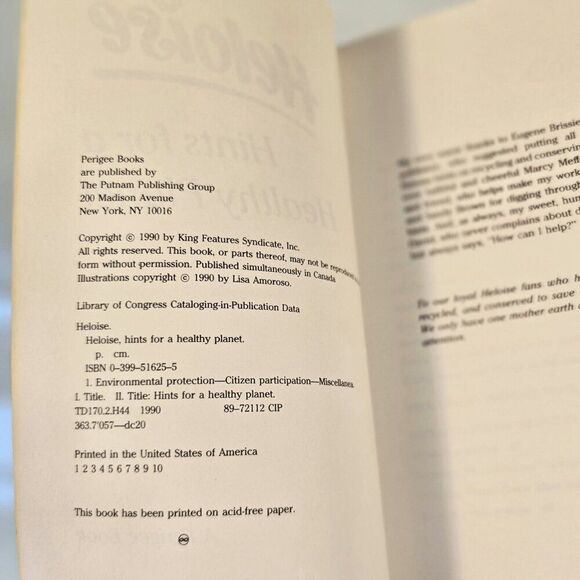 Perigee Books
are published by
The Putnam Publishing Group
200 Madison Avenue
New York, NY 10016
Copyright © 1990 by King Features Syndicate, Inc.
All rights reserved. This book, or parts thereof, may not be reproduced
form without permission. Published simultaneously in Canada
Illustrations copyright © 1990 by Lisa Amoroso.
Library of Congress Cataloging-in-Publication Data
Heloise.
Heloise, hints for a healthy planet.
p. cm.
ISBN 0-399-51625-5
1. Environmental protection—Citizen participation—Miscellanea
I. Title. II. Title: Hints for a healthy planet.
TD170.2.H44 1990 89-72112 CIP
363.7'057—dc20
Printed in the United States of America
1 2 3 4 5 6 7 8 9 10
This book has been printed on acid-free paper.
thanks to Eugene Brissie
who suggested putting all
on recycling and conserving
and cheerful Marcy Meff
who helps make my work
for digging through
as always, my sweet, hum
who never complains about
always says, "How can I help?"
To our loyal Heloise fans who h
recycled, and conserved to save
We only have one mother earth
attention.